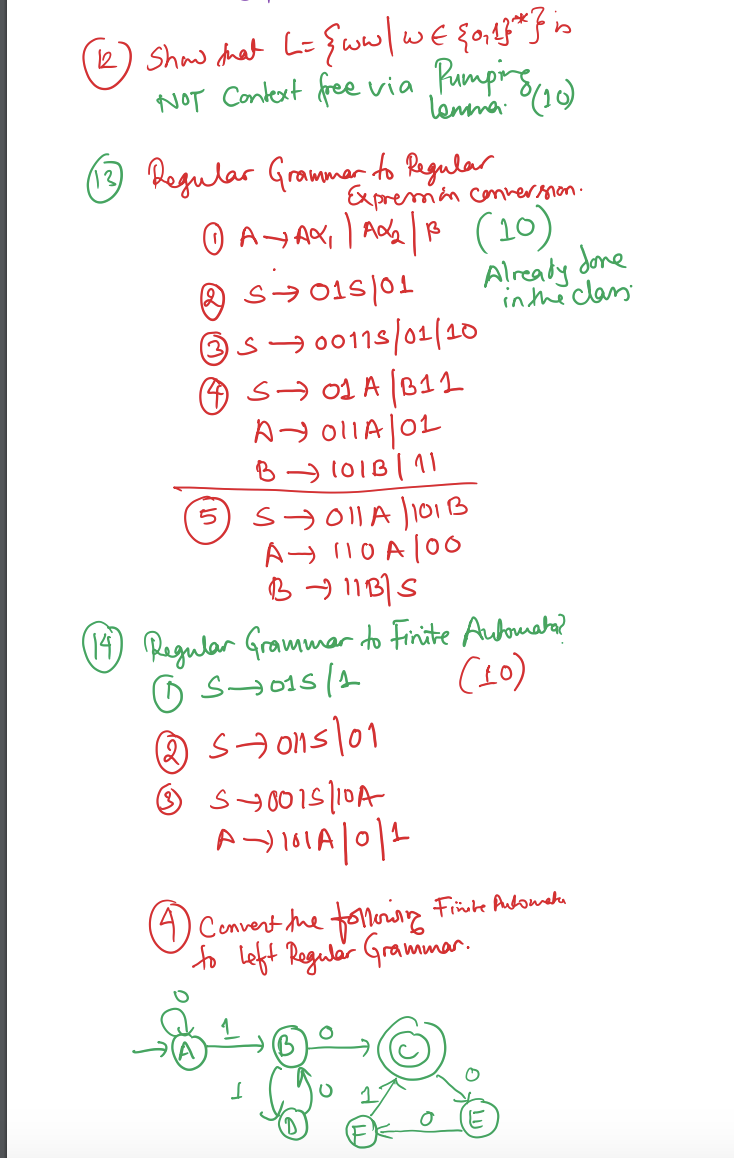 12 Show that L = {ww | w ∈ {0,1}*} is
NOT Context free via Pumping
lemma. (10)
13 Regular Grammar to Regular
Expression conversion.
① A → Aα₁ | Aα₂ | β (10)
Already done
in the class
② S → 01S | 01
③ S → 0011S | 01 | 10
④ S → 01A | B11
A → 011A | 01
B → 101B | 11
⑤ S → 011A | 101B
A → 110A | 00
B → 11B | S
14 Regular Grammar to Finite Automata?
① S → 01S | 1 (10)
② S → 011S | 01
③ S → 001S | 10A
A → 101A | 0 | 1
④ Convert the following Finite Automata
to left Regular Grammar.
0
A 1 B 0 C
1 0 1 0
D F 0 E